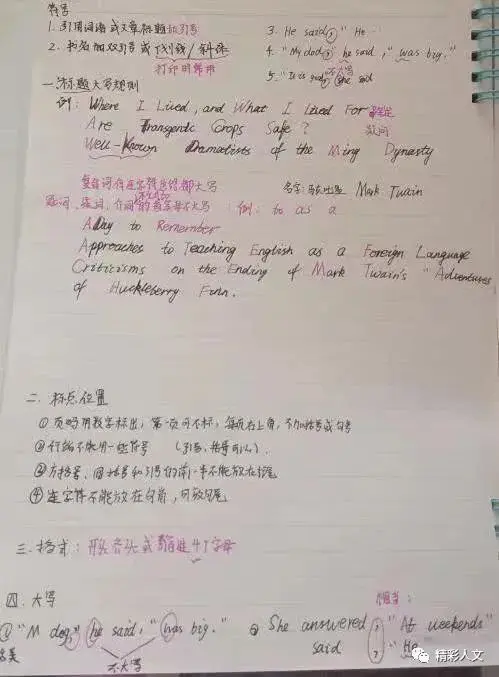 符号
1. 引用词语或文章标题加引号
2. 书名加双引号或下划线/斜体
打印用常用
3. He said, "He
4. "My dod, he said, "was big."
5. "It is good," she said
不大写
一. 标题大写规则
例: Where I Lived, and What I Lived For
Are Transgenic Crops Safe? 疑问
Well-Known Dramatists of the Ming Dynasty
复合词有连字符连结都大写
名字: Mark Twain
冠词、连词、介词 不大写: 例: to as a
A Day to Remember
Approaches to Teaching English as a Foreign Language
Criticisms on the Ending of Mark Twain's "Adventures
of Huckleberry Finn.
二. 标点位置
① 页码用数字标出, 第一页可不标, 每页右上角, 不加括号或句号
② 行端不能用一些符号 (引号, 括号可以).
③ 方括号、圆括号和引号的前一半不能放在行尾
④ 连字符不能放在句首, 可放句尾
三. 格式: 开头齐头或缩进4个字母
四. 大写
① "M dog," he said, "was big."
不大写
② She answered, "At weekends"
said : "He
相当:
精彩人文